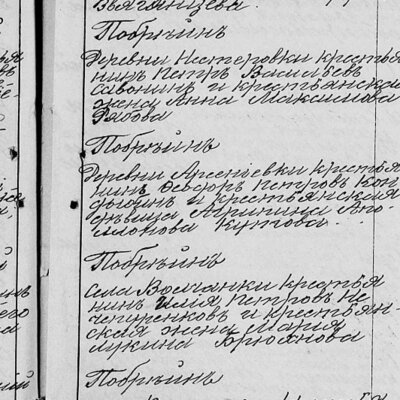 Вьяганцева.
Побргъинъ
Деревни Нестеровки крестья
нинъ Петръ Васильевъ
Савонинъ и крестьянская
жена Анна Максимова
Рядова
Побргъинъ
Деревни Арсеніевки крестья
нинъ Ѳеодоръ Петровъ Кон
и крестьянская
дѣвица Агрипина Апо
лонова Кутова.
Побргъинъ
Села Восчанки крестья
нинъ Илія Петровъ Не
чепуренковъ и крестьян-
ская жена Марія
Лукина Брюянова
Побргъинъ